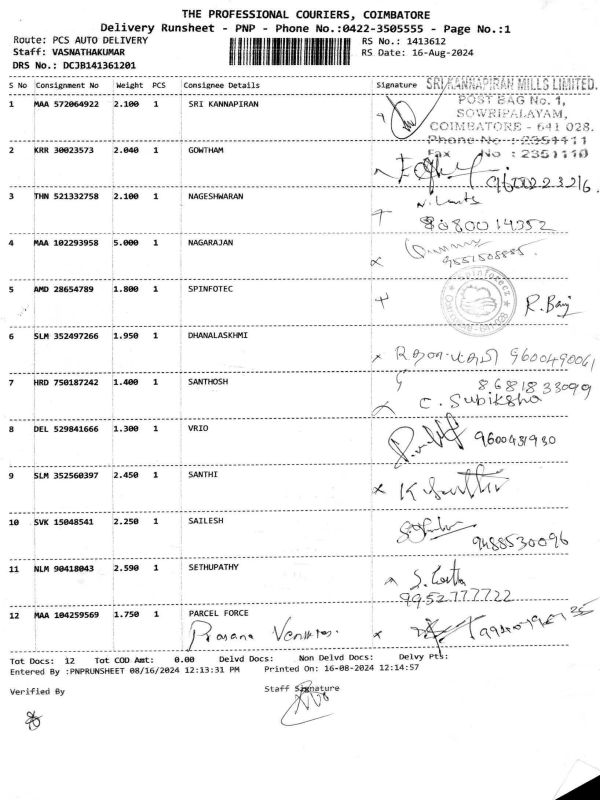 THE PROFESSIONAL COURIERS, COIMBATORE
Delivery Runsheet - PNP - Phone No.:0422-3505555 - Page No.:1
Route: PCS AUTO DELIVERY
RS No.: 1413612
Staff: VASNATHAKUMAR
RS Date: 16-Aug-2024
DRS No.: DCJB141361201
S No Consignment No Weight PCS Consignee Details Signature
SRI KANNAPIRAN MILLS LIMITED.
1 MAA 572064922 2.100 1 SRI KANNAPIRAN
POST BAG No. 1,
SOWRIPALAYAM,
COIMBATORE - 641 028.
Phone No : 2351111
Fax No : 2351110
2 KRR 30023573 2.040 1 GOWTHAM
3 THN 521332758 2.100 1 NAGESHWARAN
8080014352
4 MAA 102293958 5.000 1 NAGARAJAN
5 AMD 28654789 1.800 1 SPINFOTEC
6 SLM 352497266 1.950 1 DHANALASKHMI
9600490061
7 HRD 750187242 1.400 1 SANTHOSH
8681833099
C. Subiksha
8 DEL 529841666 1.300 1 VRIO
9 SLM 352560397 2.450 1 SANTHI
10 SVK 15048541 2.250 1 SAILESH
9488530096
11 NLM 90418043 2.590 1 SETHUPATHY
9952777722
12 MAA 104259569 1.750 1 PARCEL FORCE
Tot Docs: 12 Tot COD Amt: 0.00 Delvd Docs: Non Delvd Docs: Delvy Pts:
Entered By :PNPRUNSHEET 08/16/2024 12:13:31 PM Printed On: 16-08-2024 12:14:57
Verified By
Staff Signature